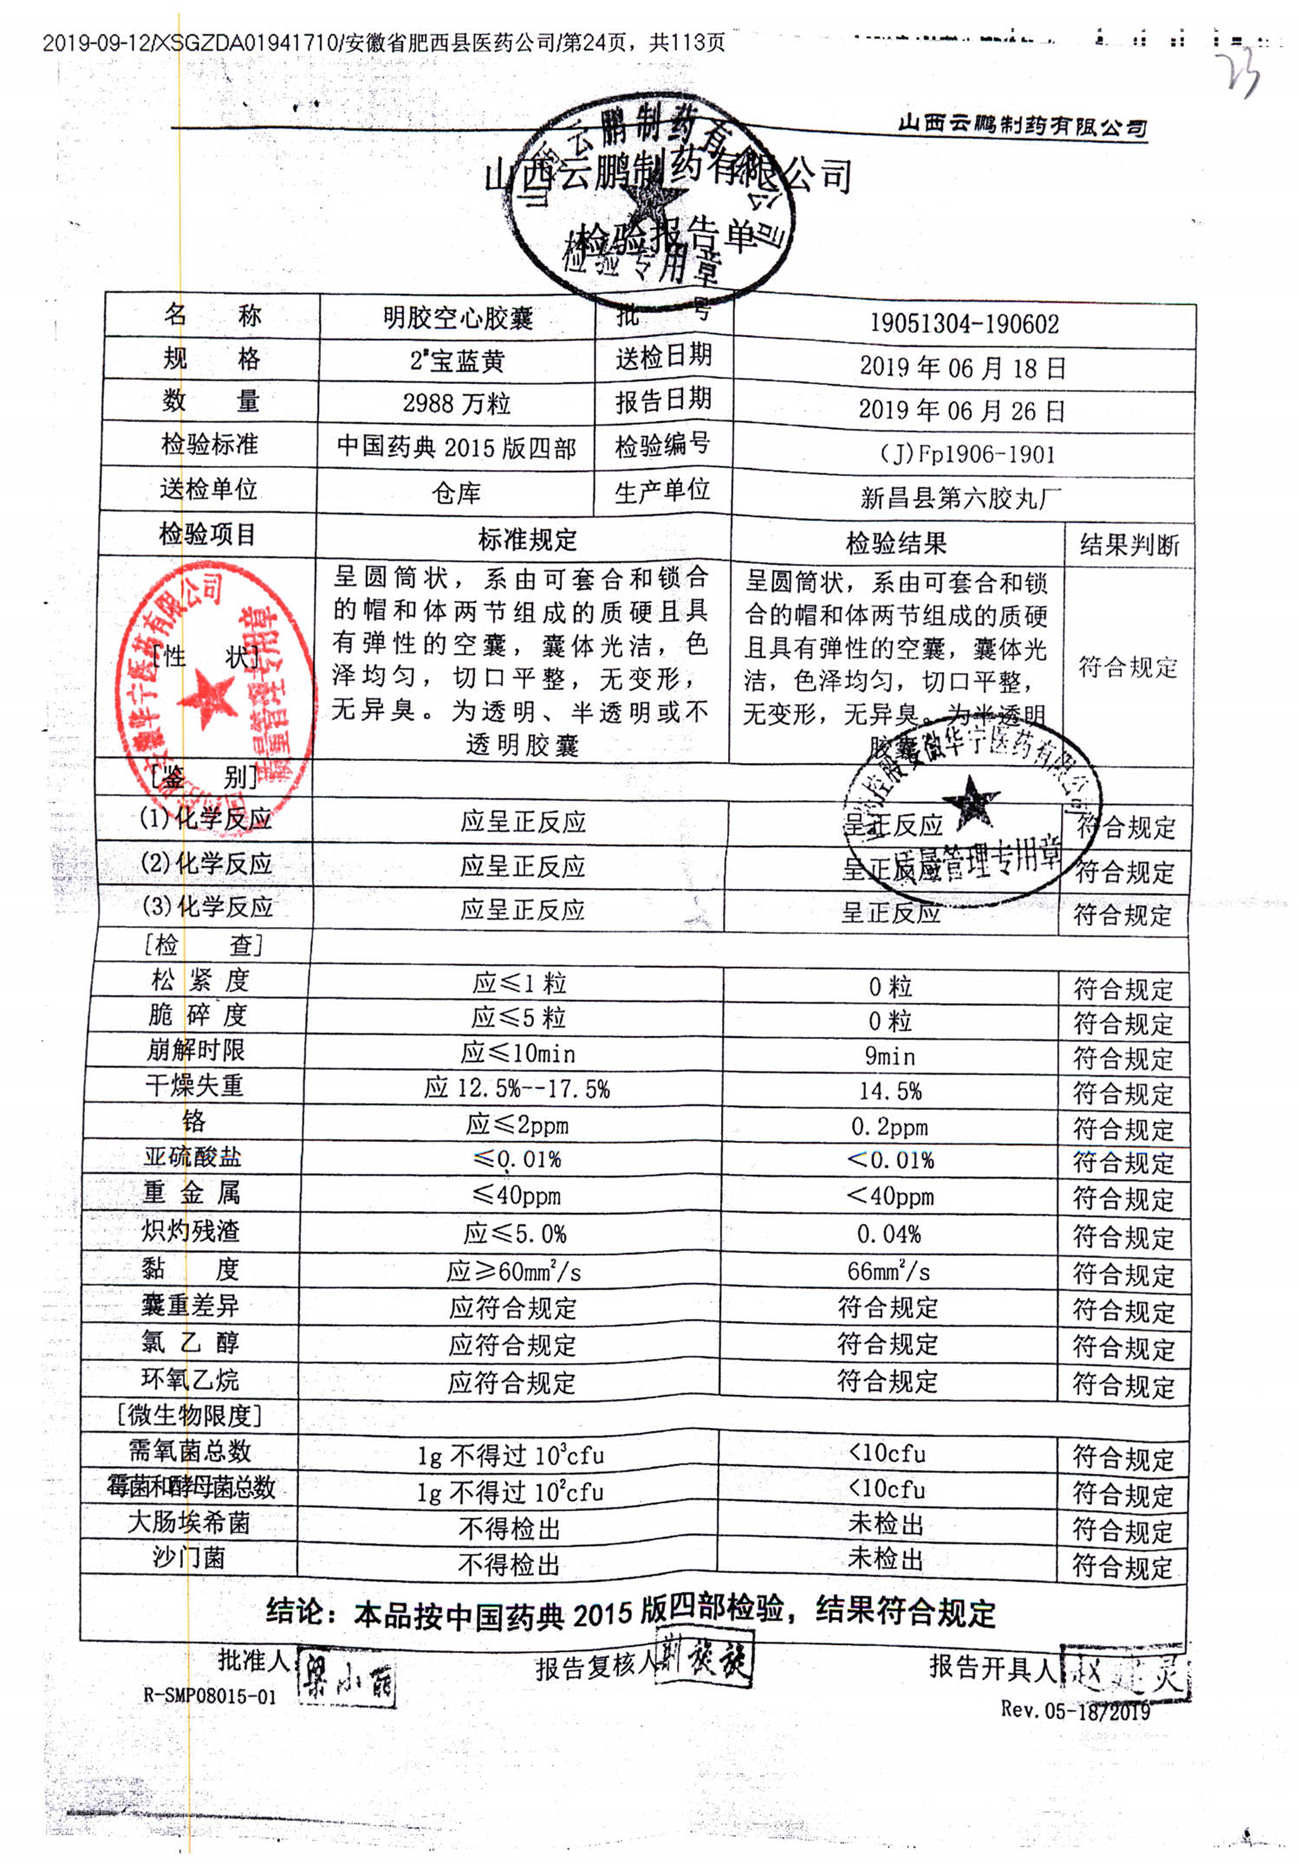 2019-09-12/XSGZDA01941710/安徽省肥西县医药公司/第24页，共113页
23
山西云鹏制药有限公司
山西云鹏制药有限公司
检验报告单
山西云鹏制药有限公司
检验专用章
名 称 明胶空心胶囊 批 号 19051304-190602
规 格 2#宝蓝黄 送检日期 2019 年 06 月 18 日
数 量 2988 万粒 报告日期 2019 年 06 月 26 日
检验标准 中国药典 2015 版四部 检验编号 (J)Fp1906-1901
送检单位 仓库 生产单位 新昌县第六胶丸厂
检验项目 标准规定 检验结果 结果判断
[性 状]
呈圆筒状，系由可套合和锁合
的帽和体两节组成的质硬且具
有弹性的空囊，囊体光洁，色
泽均匀，切口平整，无变形，
无异臭。为透明、半透明或不
透明胶囊
呈圆筒状，系由可套合和锁
合的帽和体两节组成的质硬
且具有弹性的空囊，囊体光
洁，色泽均匀，切口平整，
无变形，无异臭。为半透明
胶囊
符合规定
安徽华宁医药有限公司
质量管理专用章
[鉴 别]
控股安徽华宁医药有限公司
质量管理专用章
(1)化学反应 应呈正反应 呈正反应 符合规定
(2)化学反应 应呈正反应 呈正反应 符合规定
(3)化学反应 应呈正反应 呈正反应 符合规定
[检 查]
松 紧 度 应≤1 粒 0 粒 符合规定
脆 碎 度 应≤5 粒 0 粒 符合规定
崩解时限 应≤10min 9min 符合规定
干燥失重 应 12.5%--17.5% 14.5% 符合规定
铬 应≤2ppm 0.2ppm 符合规定
亚硫酸盐 ≤0.01% <0.01% 符合规定
重 金 属 ≤40ppm <40ppm 符合规定
炽灼残渣 应≤5.0% 0.04% 符合规定
黏 度 应≥60mm²/s 66mm²/s 符合规定
囊重差异 应符合规定 符合规定 符合规定
氯 乙 醇 应符合规定 符合规定 符合规定
环氧乙烷 应符合规定 符合规定 符合规定
[微生物限度]
需氧菌总数 1g 不得过 10³cfu <10cfu 符合规定
霉菌和酵母菌总数 1g 不得过 10²cfu <10cfu 符合规定
大肠埃希菌 不得检出 未检出 符合规定
沙门菌 不得检出 未检出 符合规定
结论：本品按中国药典 2015 版四部检验，结果符合规定
批准人 梁小丽 报告复核人 报告开具人 赵 灵
R-SMP08015-01 Rev.05-18/2019